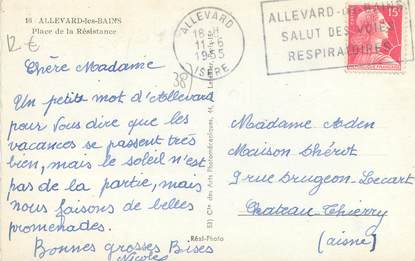 16 ALLEVARD-les-BAINS
Place de la Résistance
12 €
38
ALLEVARD
18 H
11-6
1955
ISÈRE
ALLEVARD-LES-BAINS
SALUT DES VOIES
RESPIRATOIRES
15F
Chère Madame
Un petit mot d'Allevard
pour vous dire que les
vacances se passent très
bien, mais le soleil n'est
pas de la partie, mais
nous faisons de belles
promenades.
Bonnes grosses Bises
Nicole
Cie des Arts Photomécaniques
Réal-Photo
Madame Aden
Maison Dhérot
9 rue Drugeon-Lecart
Château-Thierry
(aisne)